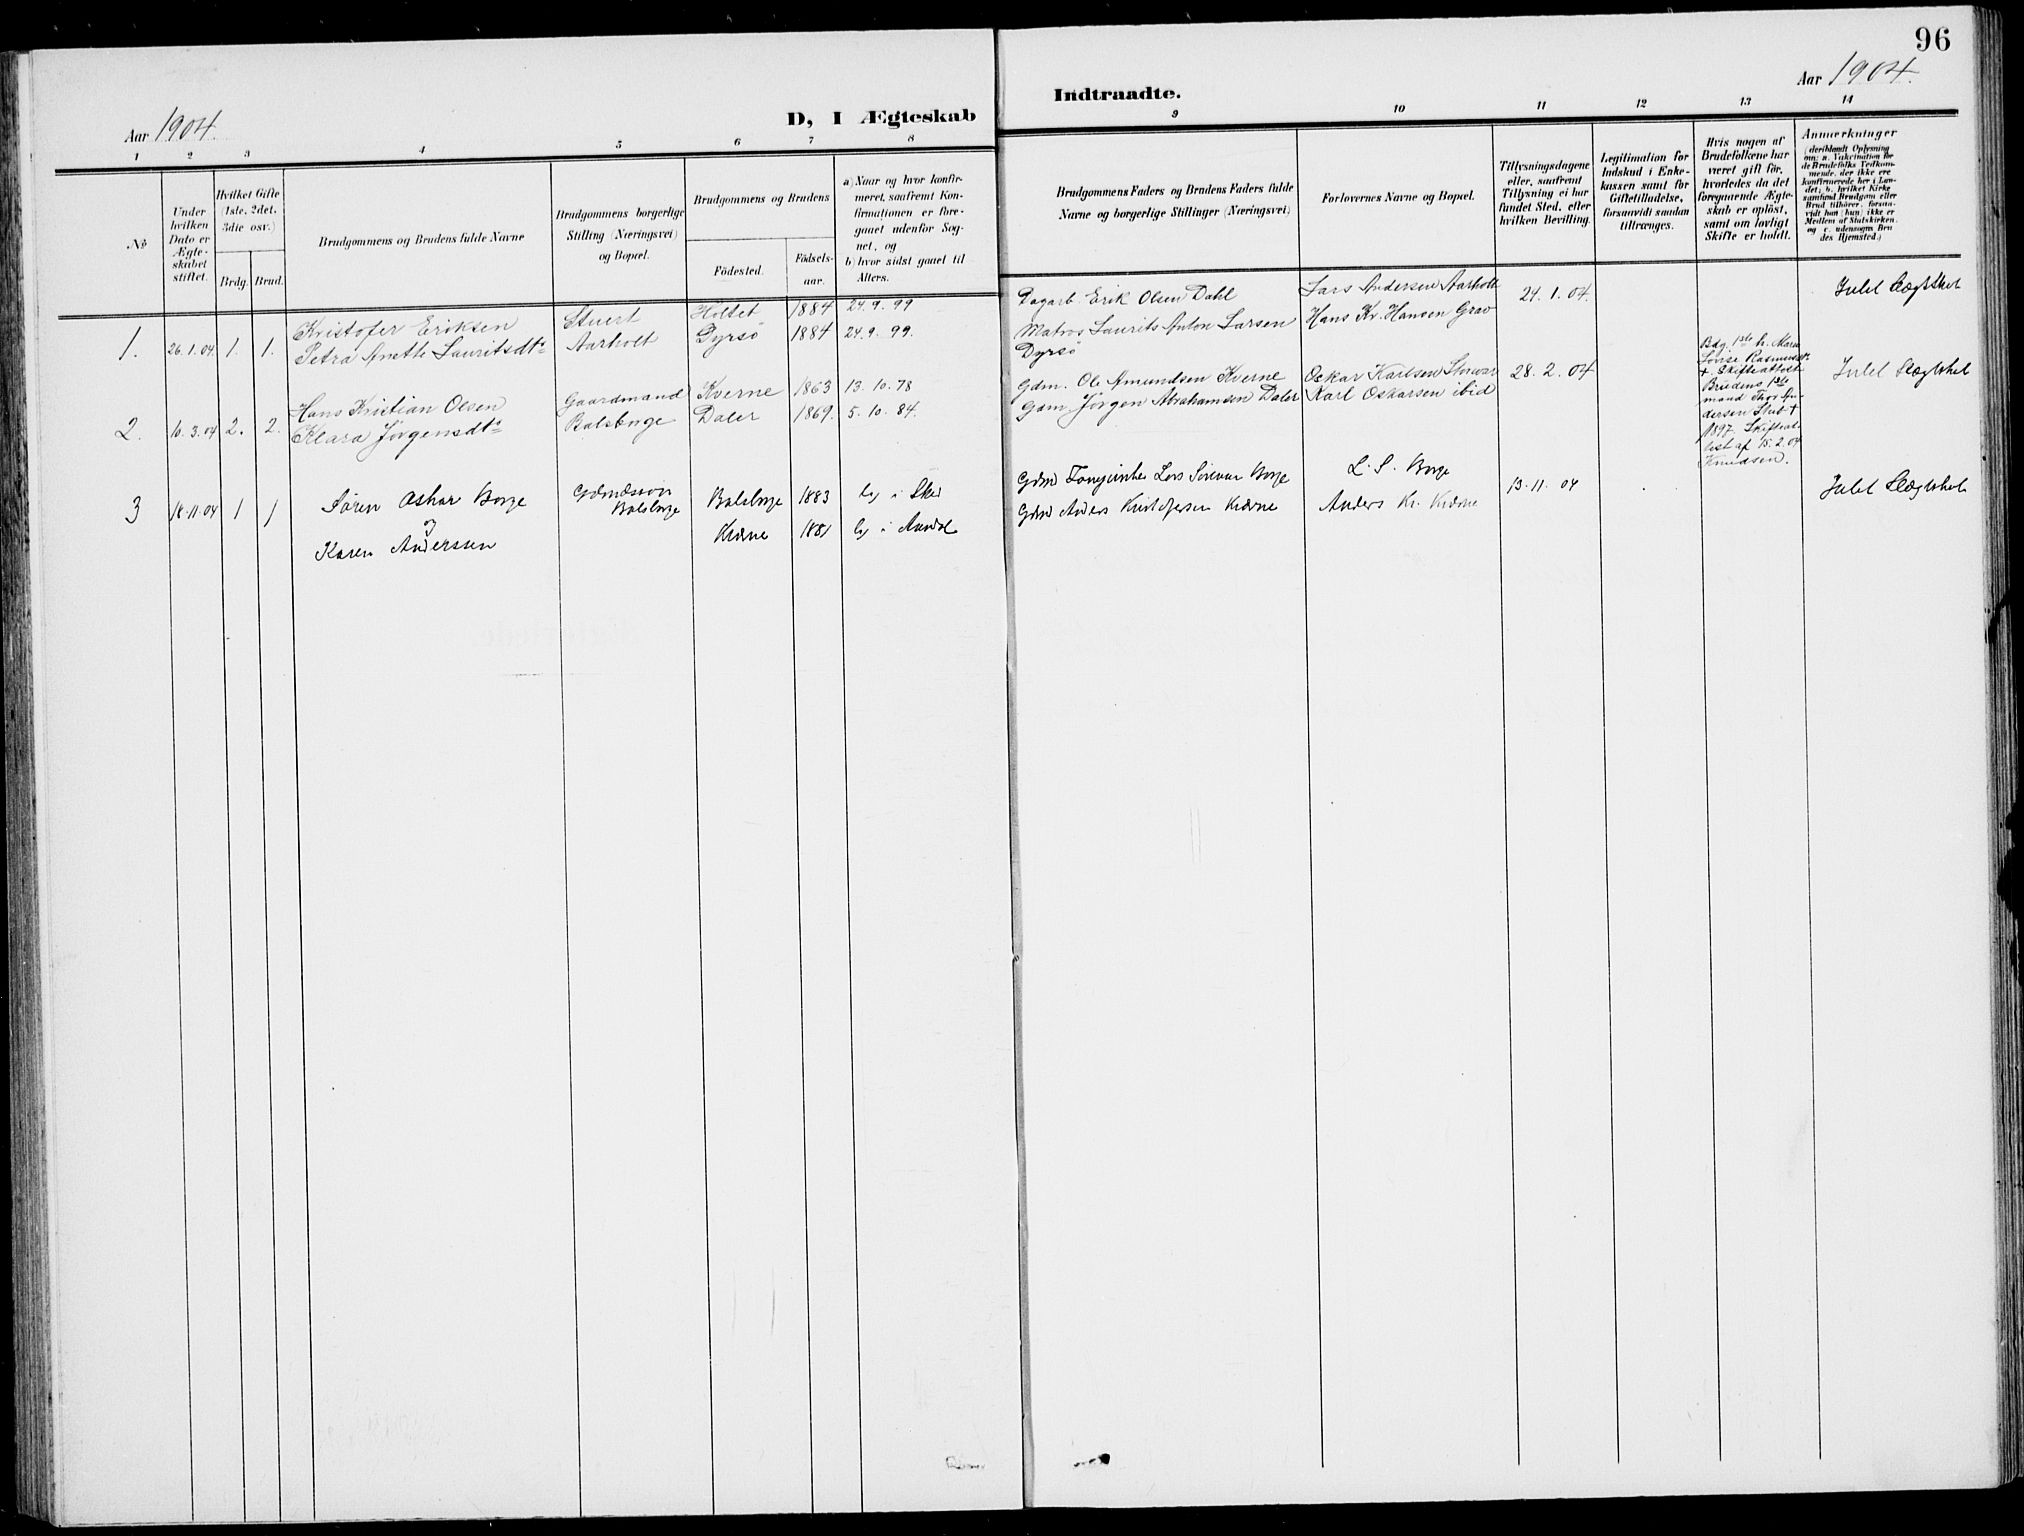 96
Aar 1904.
D, I Ægteskab
Indtraadte.
Aar 1904.
1 2 3 4 5 6 7 8
9 10 11 12 13 14
No
Under hvilken Dato er Ægteskabet stiftet.
Hvilket Gifte (1ste, 2det, 3die osv.)
Brdg. Brud.
Brudgommens og Brudens fulde Navne
Brudgommens borgerlige Stilling (Næringsvei) og Bopæl.
Brudgommens og Brudens
Fødested.
Fødselsaar.
a) Naar og hvor konfirmeret, saafremt Konfirmationen er foregaaet udenfor Sognet, og
b) hvor sidst gaaet til Alters.
Brudgommens Faders og Brudens Faders fulde Navne og borgerlige Stillinger (Næringsvei)
Forlovernes Navne og Bopæl.
Tillysningsdagene eller, saafremt Tillysning ei har fundet Sted, efter hvilken Bevilling.
Legitimation for Indskud i Enkekassen samt for Giftetilladelse, forsaavidt saadan tiltrænges.
Hvis nogen af Brudefolkene har været gift før, hvorledes da det foregaaende Ægteskab er opløst, samt om lovligt Skifte er holdt.
Anmærkninger (deriblandt Oplysning om: a. Vakcination for de Brudefolks Vedkommende, der ikke ere konfirmerede her i Landet; b. hvilket Kirkesamfund Brudgom eller Brud tilhører, forsaavidt han (hun) ikke er Medlem af Statskirken, og c. udensogns Brudes Hjemsted.)
1. 26.1.04. 1. 1. Kristofer Eriksen Stuert Holtet 1884 24.9.99
Petra Anette Lauritsdtr Aarholt Dyrsø 1884 24.9.99.
Dagarb. Erik Olsen Dahl Lars Andersen Aarholt 24.1.04. Intet Slægtskab
Matros Laurits Anton Larsen Hans Kr. Hansen Grav
Dyrsø
2. 10.3.04 2. 2. Hans Kristian Olsen Gaardmand Kverne 1863 13.10.78
Klara Jørgensdtr Balsberge Daler 1869. 5.10.84.
Gdm. Ole Amundsen Kverne Oskar Karlsen 28.2.04 Intet Slægtskab
Gdm Jörgen Abrahamsen Daler Karl Oskarsen ibid
Bdg. 1ste h. Maren
Lovise Rasmusdtr
+. Skifteattest
Brudens 1ste
mand Thor An-
dersen Stub +
1897. Skifteat-
test af 15.2.04
Knudsen.
3 18.11.04 1 1 Søren Oskar Borge Gdmdssøn Balsborge 1883
og Balsborge
Karen Anderssen Kverne 1881
Lars Borge L. S. Borge 13.11.04 Intet Slægtskab
Gdm Anders Kristofersen Kverne Anders Kr. Kverne